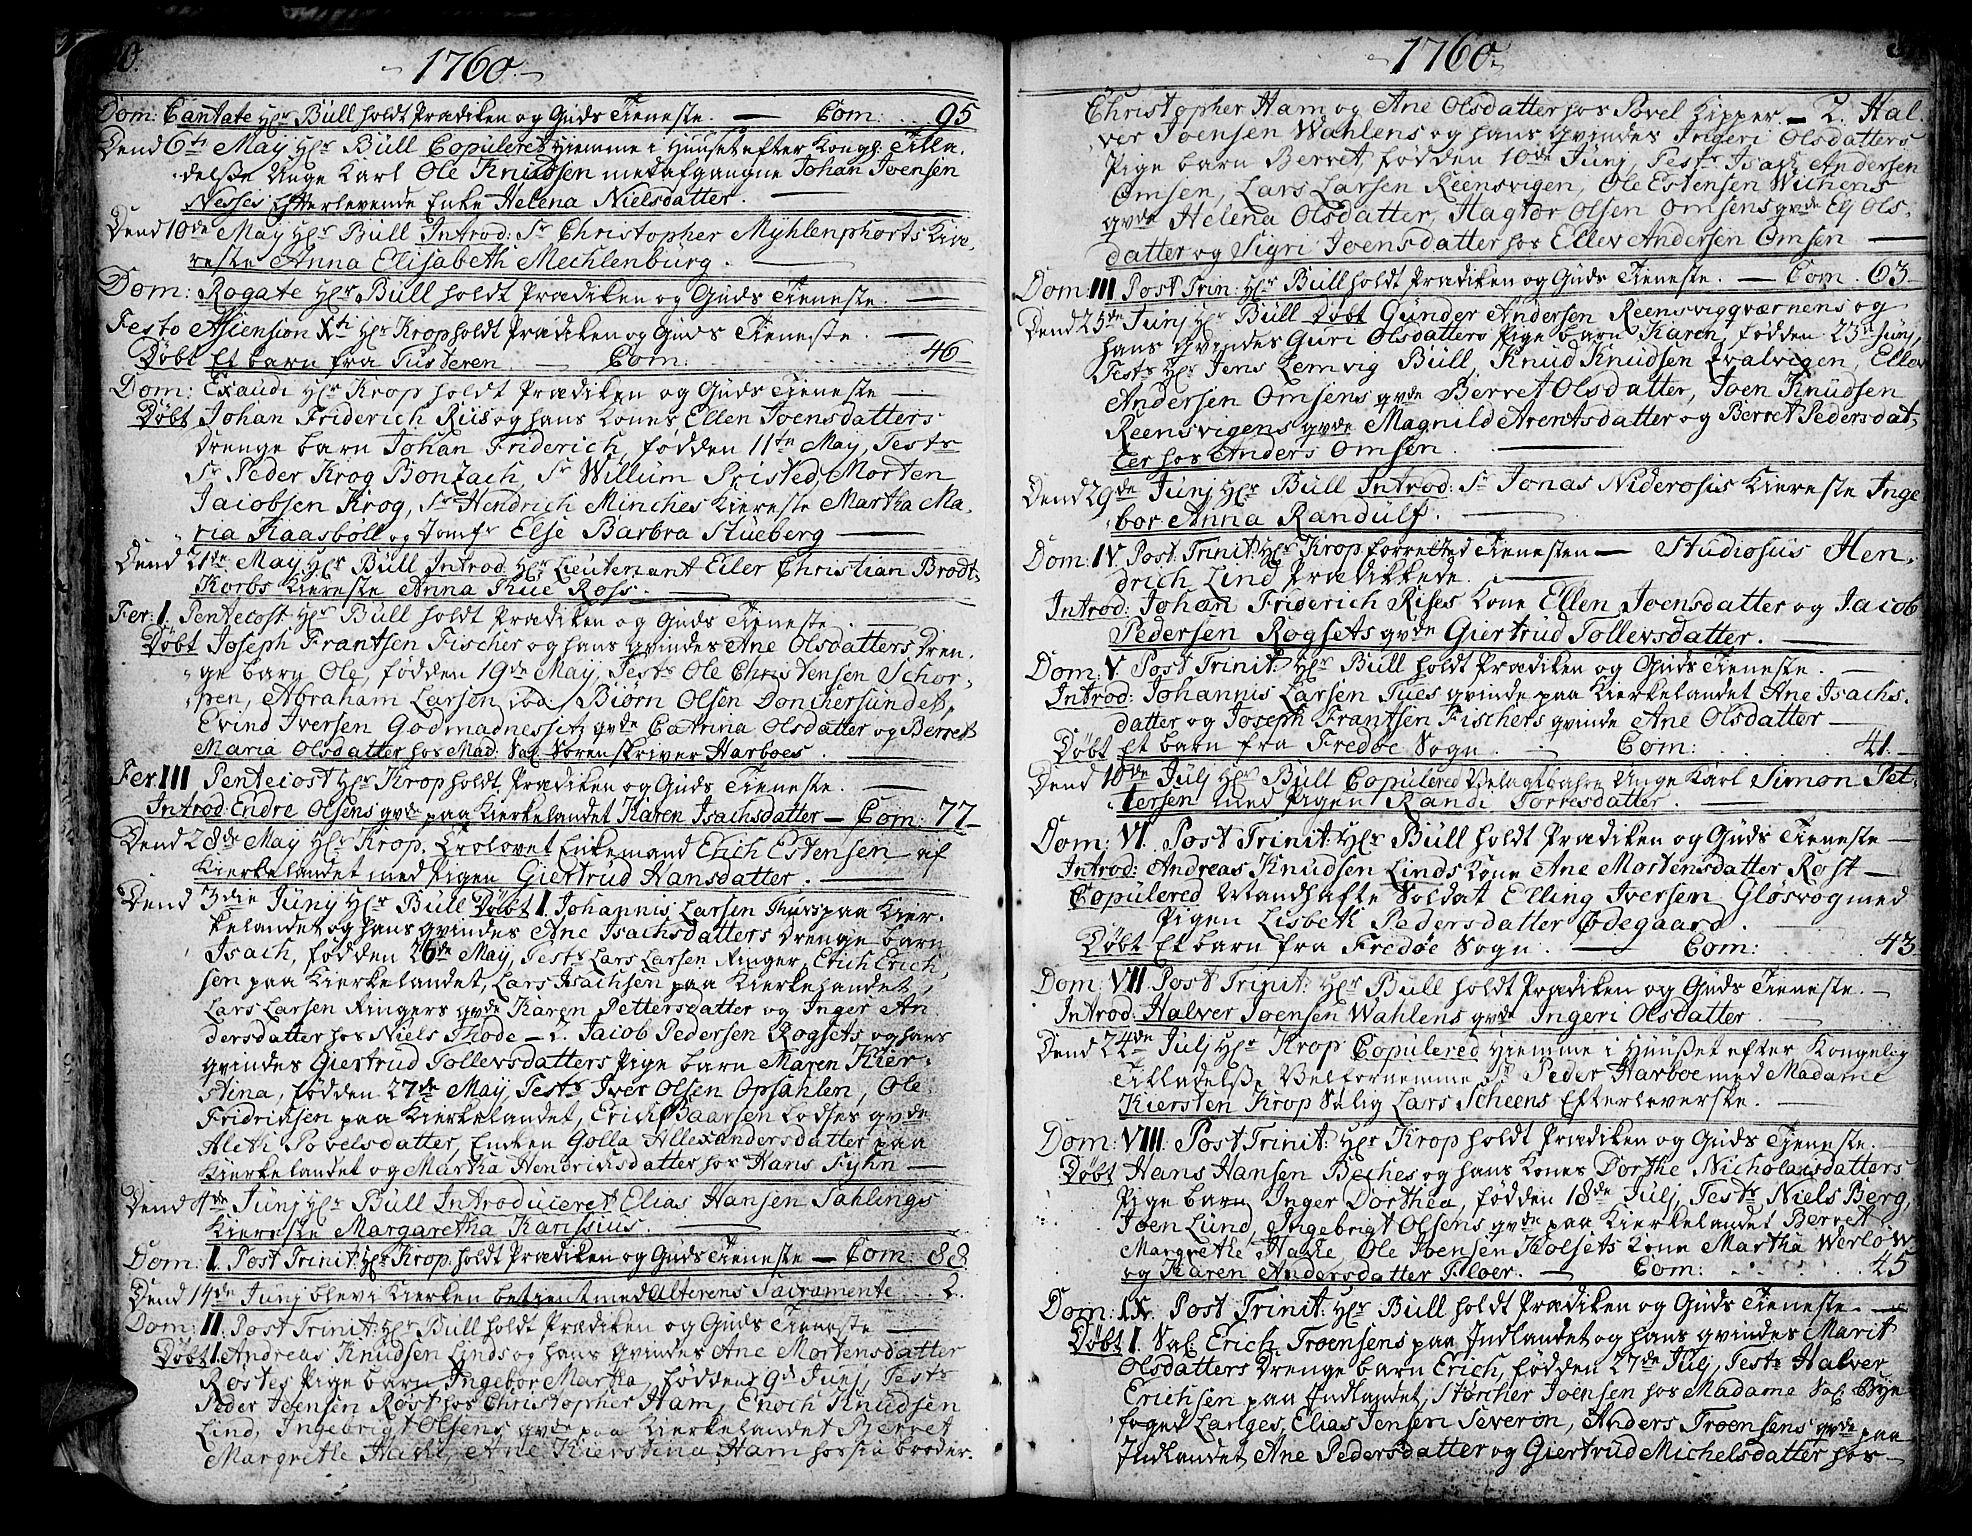 0.
-1760.-
Dom: Cantate Hr Büll holdt Prædiken og Guds Tieneste. — Com: .. 95
Dend 6te May Hr Büll Copuleret hiemme i Huuset efter Kongl: Tilla,
delsse Unge Karl Ole Knudsen med afgangne Johan Joensen
Nesses Efterlevende Enke Helena Nielsdatter. —
Dend 10de May Hr Büll Introd: Sr Christopher Mÿhlenphorts Kiæ,
reste Anna Elisabeth Mechlenburg. —
Dom: Rogate Hr Büll holdt Prædiken og Guds Tieneste. —
Festo Asiension Xti Hr Krop holdt Prædiken og Guds Tieneste. —
Døbt Et barn fra Tusderen. — Com: .. 46
Dom: Exaudi Hr Krop holdt Prædiken og Guds Tieneste —
Døbt Johan Friderich Riis og hans Kones Ellen Joensdatters
Drenge barn Johan Friderich, fødden 11te May, Tests
Sr Peder Krog Bonzach, Sr Willum Pristed, Morten
Jacobsen Krog, Sr Hendrich Minches Kiereste Martha Ma,
ria Kaasbøll og Jomfr Else Barbra Stueberg —
Dend 21de May Hr Büll Introd: Hr Lieutenant Eiler Christian Brodt,
Korbs Kiereste Anna Kue Ross. —
Fer: I. Pentecost Hr Büll holdt Prædiken og Guds Tieneste. —
Døbt Joseph Frantsen Fischer og hans qvindes Ane Olsdatters Dren,
ge barn Ole, fødden 19de May, Tests Ole Christensen Schor,
pen, Abraham Larsen ibd, Biørn Olsen Donchersundet,
Evind Iversen Godmadnessitz qvde Catrina Olsdatter og Berret
Maria Olsdatter hos Mad: Sal Sorenskriver Harboes. —
Fer III Pentecost Hr Krop holdt Prædiken og Guds Tieneste. —
Introd: Endre Olsens qvde paa Kierkelandet Karen Isachsdatter — Com: 77
Dend 28de May Hr Krop. Trolovet Enkemand Erich Estensen af
Kierkelandet med Pigen Giertrud Hansdatter. —
Dend 3die Junj Hr Büll Døbt 1. Johannis Larsen Thues paa Kier,
kelandet og hans qvindes Ane Isachsdatters Drenge barn
Isach, fødden 26de May, Tests Lars Larsen Ringer, Erich Erich,
sen paa Kierkelandet, Lars Isachsen paa Kierkelandet,
Lars Larsen Ringers qvde Karen Pettersdatter og Inger An
dersdatter hos Niels Thode — 2. Jacob Pedersen Rogsets og hans
qvindes Giertrud Tollevsdatters Pige barn Maren Kier,
stina, fødden 27de May, Tests Iver Olsen Opsahlen, Ole
Fridrichsen paa Kierkelandet, Erich Baarsen Lodses qvde
Aleth Povelsdatter, Enken Golla Allexandersdatter paa
Kierkelandet og Martha Hendrichsdatter hos Hans Fyhn —
Dend 4de Junj Hr Büll Introduceret Elias Hansen Sahlings
Kiereste Margaretha Karissius. —
Dom: I. Post Trinit: Hr Krop holdt Prædiken og Guds Tieneste — Com: 88
Dend 14de Junj blev i Kierken betient med Alterens Sacramente .. 2.
Dom: II. Post Trinit: Hr Büll holdt Prædiken og Guds Tieneste —
Døbt 1. Andreas Knudsen Linds og hans qvindes Ane Mortensdatter
Rostes Pige barn Ingebor Martha, fødden 9de Junj, Tests
Peder Joensen Røst hos Christopher Ham, Enoch Knudsen
Lind, Ingebrigt Olsens qvde paa Kierkelandet Berret
Margrethe Hake, Ane Kierstina Ham hos sin broder.
-1760.-
Christopher Ham og Ane Olsdatter hos Povel Kipper. — 2. Hal,
ver Joensen Wahlens og hans qvindes Ingeri Olsdatters
Pige barn Berret, fødden 10de Junj, Tests Isach Andersen
Omsen, Lars Larsen Reensvigen, Ole Estensen Wihens
qvde Helena Olsdatter, Hagtor Olsen Omsens qvde Eli Ols,
datter og Sigri Joensdatter hos Ellev Andersen Omsen —
Dom: III Post Trin: Hr Büll holdt Prædiken og Guds Tieneste. — Com. 63.
Dend 25de Junj Hr Büll Døbt Gunder Andersen Reensvigqværnens og
hans qvindes Guri Olsdatters Pige barn Karen, fødden 23de Junj,
Tests Hr Jens Lemvig Büll, Knud Knudsen Qvalvigen, Ellev
Andersen Omsens qvde Berret Olsdatter, Joen Knudsen
Reensvigens qvde Magnild Arentsdatter og Berret Pedersdat,
ter hos Anders Omsen. —
Dend 29de Junj Hr Büll Introd: Sr Jonas Niderosis Kiereste Inge
bor Anna Randulf. —
Dom: IV. Post. Trinit: Hr Krop forretted Tienesten — Studiosus Hen,
drich Lind Prædikkede. —
Introd: Johan Friderich Rises Kone Ellen Joensdatter og Jacob
Pedersen Rogsets qvde Giertrud Tollevsdatter. —
Dom: V. Post Trinit: Hr Büll holdt Prædiken og Guds Tieneste. —
Introd: Johannis Larsen Tues qvinde paa Kierkelandet Ane Isachs,
datter og Joseph Frantsen Fischers qvinde Ane Olsdatter —
Døbt Et barn fra Fredøe Sogn. — Com: .. 41. —
Dend 10de Julj Hr Büll Copulered Velagtbahre Unge Karl Simon Pet,
tersen med Pigen Randi Torresdatter. —
Dom: VI. Post Trinit: Hr Büll holdt Prædiken og Guds Tieneste —
Introd: Andreas Knudsen Linds Kone Ane Mortensdatter Rost —
Copulered Mandhafte Soldat Elling Iversen Gløsvog med
Pigen Lisbeth Pedersdatter Ødegaard. —
Døbt Et barn fra Fredøe Sogn. — Com: .. 43.
Dom: VII Post Trinit: Hr Büll holdt Prædiken og Guds Tieneste. —
Introd: Halver Joensen Wahlens qvde Ingeri Olsdatter. —
Dend 24de Julj Hr Krop Copulered hiemme i Huuset efter Kongelig
Tilladelsse Velfornemme Sr Peder Harboe med Madame
Kiersten Krop Salig Lars Scheens Efterleverske. —
Dom: VIII. Post Trinit: Hr Krop holdt Prædiken og Guds Tieneste.
Døbt Hans Hansen Beches og hans Kones Dorthe Nicholaisdatters
Pige barn Inger Dorthea, fødden 18de Julj, Tests Niels Berg,
Joen Lund, Ingebrigt Olsens qvde paa Kierkelandet Berret
Margrethe Hake, Ole Joensen Kolsets Kone Martha Werløw
og Karen Andersdatter Floer. — Com: .. 45
Dom: IX. Post Trinit: Hr Büll holdt Prædiken og Guds Tieneste. —
Døbt 1. Sal Erich Troensens paa Indlandet og hans qvindes Marit
Olsdatters Drenge barn Erich, fødden 27de Julj, Tests Halver
Erichsen paa Indlandet, Storcher Joensen hos Madame Sal Bye
foget Langes, Elias Jensen Severin, Anders Troensens qvde paa
Indlandet Ane Pedersdatter og Giertrud Michelsdatter hos —